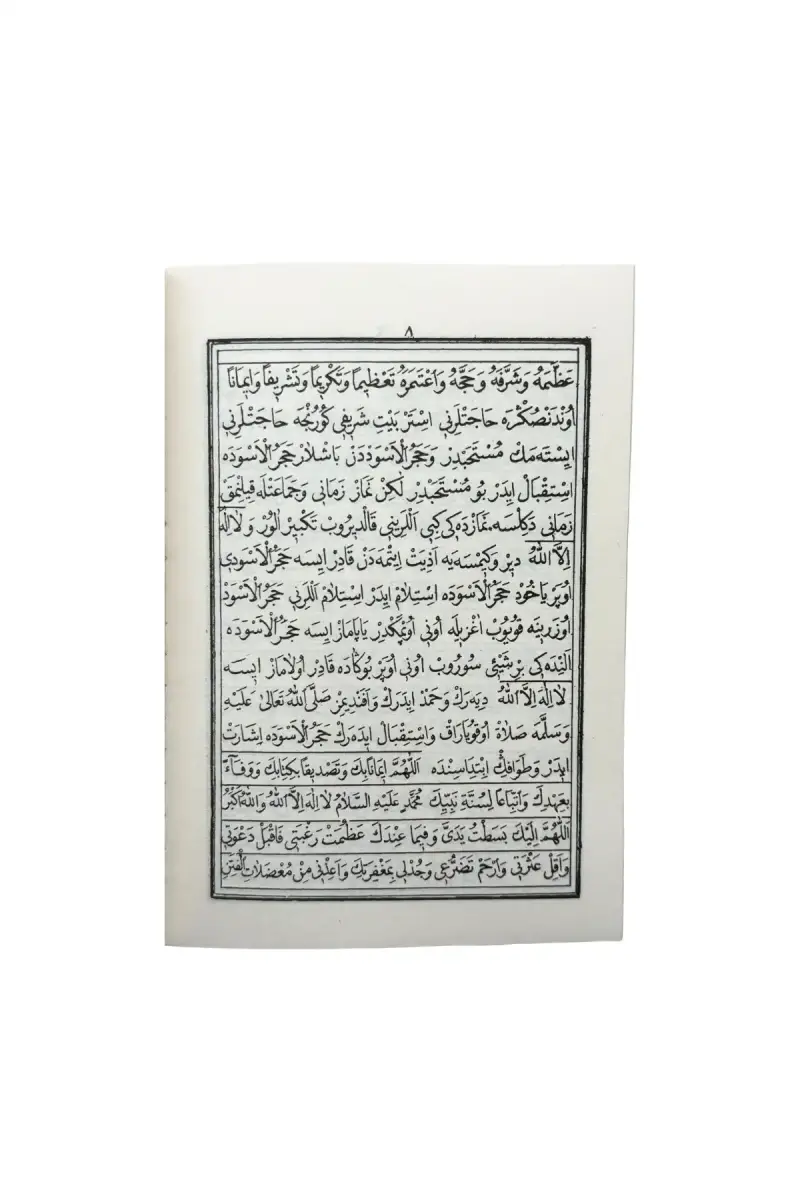 ٨
عَظَّمَهُ وَشَرَّفَهُ وَحَجَّهُ وَاعْتَمَرَهُ تَعْظِيمًا وَتَكْرِيمًا وَتَشْرِيفًا وَاِيمَانًا
اُونْدَنْصُكْرَه حَاجَتْلَرِنِي اِسْتَرْ بَيْتِ شَرِيفِي كُورُنْجَه حَاجَتْلَرِنِي
اِيسْتَه مَكْ مُسْتَحَبْدِرْ وَحَجَرُ الْاَسْوَدْدَنْ بَاشْلَارْ حَجَرُ الْاَسْوَدَه
اِسْتِقْبَالْ اِيدَرْ بُو مُسْتَحَبْدِرْ لَكِنْ نَمَازْ زَمَانِي وَجَمَاعَتْلَه قِيلِنْمَقْ
زَمَانِي دَكِلْسَه نَمَازْدَه كِي كِبِي اَللَّرِينِي قَالْدِيرُوبْ تَكْبِيرْ اَلُورْ وَلَا اِلٰهَ
اِلَّا اللّٰهُ دِيرْ وَكِيمْسَه يَه اَذِيَتْ اِيتْمَه دَنْ قَادِرْ اِيسَه حَجَرُ الْاَسْوَدِي
اُوپَرْ يَاخُودْ حَجَرُ الْاَسْوَدَه اِسْتِلَامْ اِيدَرْ اِسْتِلَامْ اَللَّرِنِي حَجَرُ الْاَسْوَدْ
اُوزَرِينَه قُويُوبْ اَغْزِيلَه اُونِي اُوپْمَكْدِرْ يَاپَامَازْ اِيسَه حَجَرُ الْاَسْوَدَه
اَلِنْدَه كِي بِرْ شَيْئِي سُورُوبْ اُونِي اُوپَرْ بُوكَادَه قَادِرْ اُولَامَازْ اِيسَه
لَا اِلٰهَ اِلَّا اللّٰهُ دِيَه رَكْ وَحَمْدْ اِيدَرَكْ وَاَفَنْدِيمِزْ صَلَّى اللّٰهُ تَعَالٰى عَلَيْهِ
وَسَلَّمَه صَلَاةْ اُوقُويَارَاقْ وَاِسْتِقْبَالْ اِيدَه رَكْ حَجَرُ الْاَسْوَدَه اِشَارَتْ
اِيدَرْ وَطَوَافِكْ اِبْتِدَاسِنْدَه اَللّٰهُمَّ اِيمَانًا بِكَ وَتَصْدِيقًا بِكِتَابِكَ وَوَفَاءً
بِعَهْدِكَ وَاتِّبَاعًا لِسُنَّةِ نَبِيِّكَ مُحَمَّدٍ عَلَيْهِ السَّلَامُ لَا اِلٰهَ اِلَّا اللّٰهُ وَاللّٰهُ اَكْبَرُ
اَللّٰهُمَّ اِلَيْكَ بَسَطْتُ يَدَيَّ وَفِيمَا عِنْدَكَ عَظُمَتْ رَغْبَتِي فَاقْبَلْ دَعْوَتِي
وَاَقِلْ عَثْرَتِي وَارْحَمْ تَضَرُّعِي وَجُدْلِي بِمَغْفِرَتِكَ وَاَعِذْنِي مِنْ مُعْضَلَاتِ الْفِتَنِ